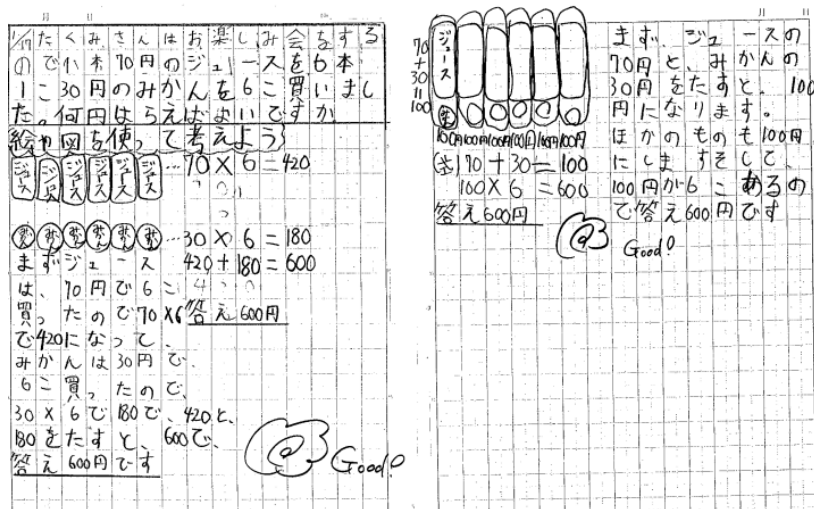 1/19 たくみさんはお楽しみ会をする
ので1本70円のジュースを6本
1こ30円のみかんを6こ買いまし
た。何円はらえばよいですか
絵や図を使って考えよう
ジュース ジュース ジュース ジュース ジュース ジュース …70×6=420
みかん みかん みかん みかん みかん みかん …30×6=180
420+180=600
答え600円
まずジュース
は、70円で6こ
買ったので70×6
で420になって、
みかんは30円で、
6こ買ったので、
30×6で180で、420と、
180をたすと、600で、
答え600円です
Good!
70+30=100
ジュース
100円 100円 100円 100円 100円 100円
(式)70+30=100
100×6=600
答え600円
まず、ジュースの
70円と、みかんの
30円をたすと、100
円になります。
ほかのものも100円
にしますそして、
100円が6こあるの
で答え600円です
Good!